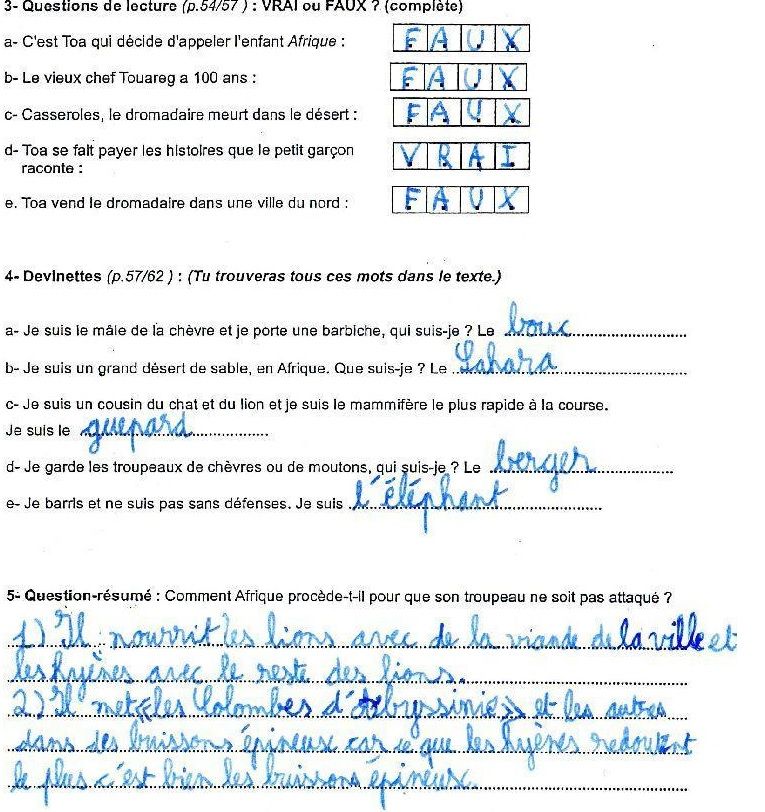 3- Questions de lecture (p.54/57 ) : VRAI ou FAUX ? (complète)
a- C'est Toa qui décide d'appeler l'enfant Afrique : FAUX
b- Le vieux chef Touareg a 100 ans : FAUX
c- Casseroles, le dromadaire meurt dans le désert : FAUX
d- Toa se fait payer les histoires que le petit garçon
raconte : VRAI
e. Toa vend le dromadaire dans une ville du nord : FAUX
4- Devinettes (p.57/62 ) : (Tu trouveras tous ces mots dans le texte.)
a- Je suis le mâle de la chèvre et je porte une barbiche, qui suis-je ? Le bouc
b- Je suis un grand désert de sable, en Afrique. Que suis-je ? Le Sahara
c- Je suis un cousin du chat et du lion et je suis le mammifère le plus rapide à la course.
Je suis le guepard
d- Je garde les troupeaux de chèvres ou de moutons, qui suis-je ? Le berger
e- Je barris et ne suis pas sans défenses. Je suis l'éléphant
5- Question-résumé : Comment Afrique procède-t-il pour que son troupeau ne soit pas attaqué ?
1) Il nourrit les lions avec de la viande de la ville et
les hyènes avec le reste des lions.
2) Il met «les Colombes d'Abyssinie» et les autres
dans des buissons épineux car ce que les hyènes redoutent
le plus c'est bien les buissons épineux.